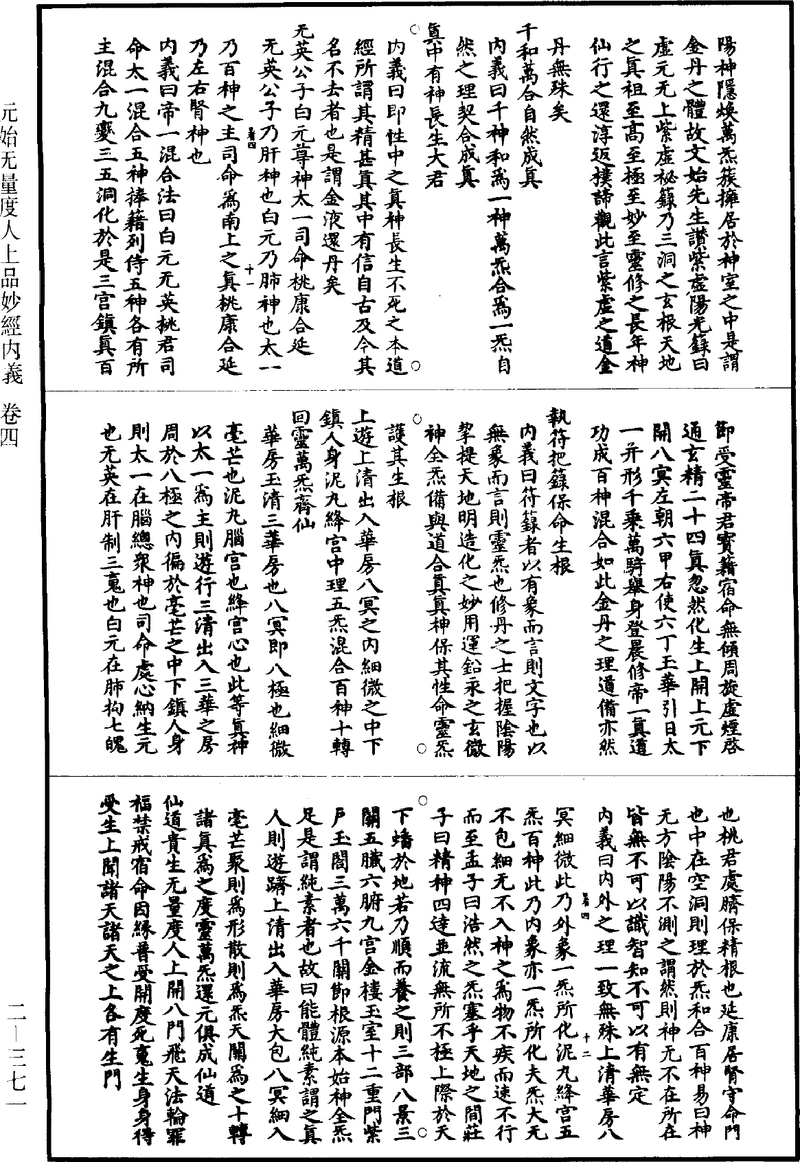 陽神隱煥萬炁蔟擁居於神室之中是謂
金丹之體故文始先生讃紫虛陽光籙曰
虛元无上紫虛祕籙乃三洞之玄根天地
之真祖至高至極至妙至靈修之長年神
仙行之還淳返樸諦觀此言紫虛之道金
丹無殊矣
千和萬合自然成真
內義曰千神和爲一神萬炁合爲一炁自
然之理契合成真
真中有神長生大君
內義曰即性中之真神長生不死之本道
經所謂其精甚真其中有信自古及今其
名不去者也是謂金液還丹矣
无英公子白元尊神太一司命桃康合延
无英公子乃肝神也白元乃肺神也太一
卷四
十一
乃百神之主司命爲南上之真桃康合延
乃左右腎神也
內義曰帝一混合法曰白元无英桃君司
命太一混合五神捧藉列侍五神各有所
主混合九變三五洞化於是三宮鎮真百
節受靈帝君寶籍宿命無傾周旋虛煙啓
通玄精二十四真忽然化生上開上元下
開八冥左朝六甲右使六丁玉華引日太
一并形千乘萬騎舉身登晨修帝一真道
功成百神混合如此金丹之理道備亦然
執符把籙保命生根
內義曰符籙者以有象而言則文字也以
無象而言則靈炁也修丹之士把握陰陽
挈提天地明造化之妙用運鉛汞之玄微
神全炁備與道合真真神保其性命靈炁
護其生根
上遊上清出入華房八冥之內細微之中下
鎮人身泥丸絳宮中理五炁混合百神十轉
回靈萬炁齊仙
華房玉清三華房也八冥即八極也細微
毫芒也泥丸腦宮也絳宮心也此等真神
以太一爲主則遊行三清出入三華之房
周於八極之內徧於毫芒之中下鎮人身
則太一在腦總衆神也司命處心納生元
也无英在肝制三䰟也白元在肺拘七魄
也桃君處臍保精根也延康居腎守命門
也中在空洞則理於炁和合百神易曰神
无方陰陽不測之謂然則神无不在所在
皆無不可以識智知不可以有無定
內義曰內外之理一致無殊上清華房八
卷四
十二
冥細微此乃外象一炁所化泥丸絳宮五
炁百神此乃內象亦一炁所化夫炁大无
不包細无不入神之爲物不疾而速不行
而至孟子曰浩然之炁塞乎天地之間莊
子曰精神四達並流無所不極上際於天
下蟠於地若乃順而養之則三部八景三
關五臟六腑九宮金樓玉室十二重門紫
戶玉閤三萬六千關節根源本始神全炁
足是謂純素者也故曰能體純素謂之真
人則遊躋上清出入華房大包八冥細入
毫芒聚則爲形散則爲炁天關爲之十轉
諸真爲之度靈萬炁還元俱成仙道
仙道貴生无量度人上開八門飛天法輪罪
福禁戒宿命因緣普受開度死䰟生身身得
受生上聞諸天諸天之上各有生門
元始无量度人上品妙經內義 卷四
二—三七一